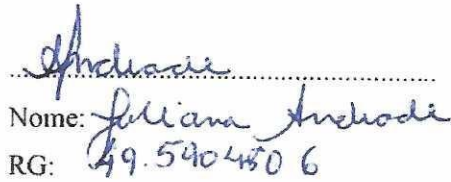 Andrade
Nome: Juliana Andrade
RG: 49.590450 6